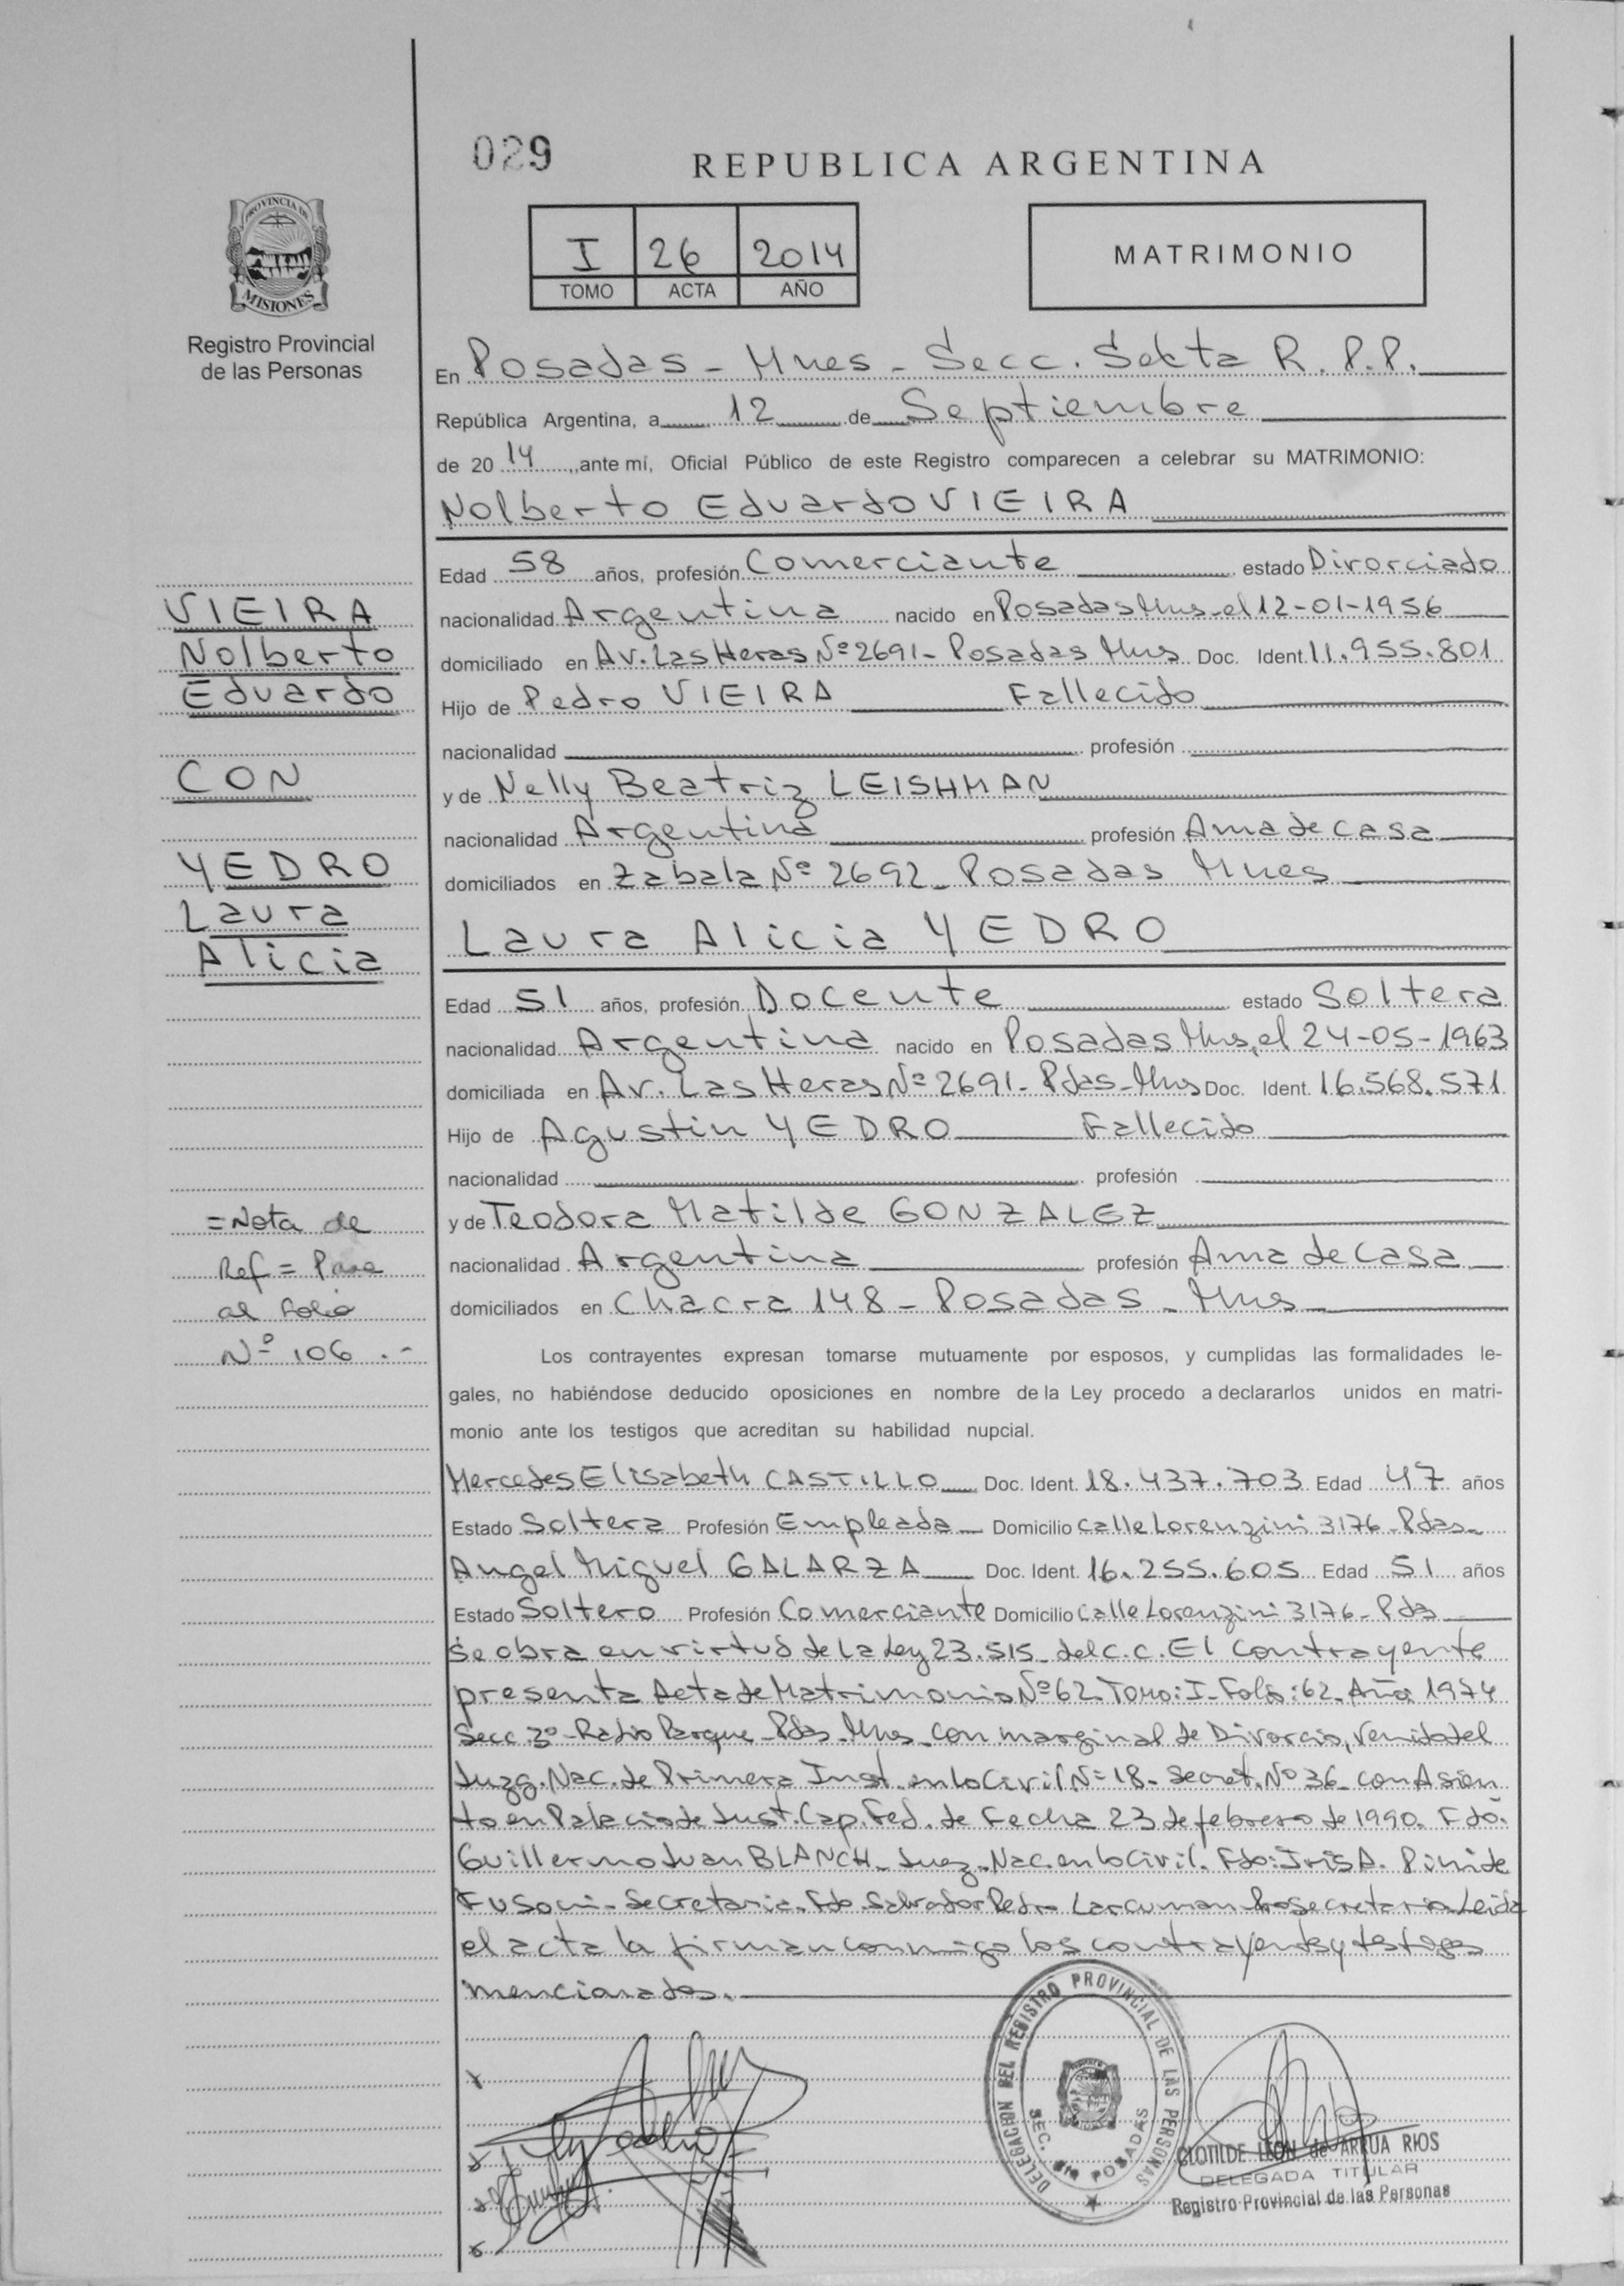 029
REPUBLICA ARGENTINA
PROVINCIA DE
MISIONES
Registro Provincial
de las Personas
I 26 2014
TOMO ACTA AÑO
MATRIMONIO
En Posadas - Mnes - Secc. Sekta R.P.P.
República Argentina, a 12 de Septiembre
de 20 14, ante mí, Oficial Público de este Registro comparecen a celebrar su MATRIMONIO:
Nolberto Eduardo VIEIRA
Edad 58 años, profesión Comerciante estado Divorciado
nacionalidad Argentina nacido en Posadas Mns - el 12-01-1956
domiciliado en Av. Las Heras Nº 2691 - Posadas Mns Doc. Ident. 11.955.801
Hijo de Pedro VIEIRA Fallecido
nacionalidad profesión
y de Nelly Beatriz LEISHMAN
nacionalidad Argentina profesión Ama de casa
domiciliados en Zabala Nº 2692 - Posadas Mnes
Laura Alicia YEDRO
Edad 51 años, profesión Docente estado Soltera
nacionalidad Argentina nacido en Posadas Mns, el 24-05-1963
domiciliada en Av. Las Heras Nº 2691 - Pdas - Mns Doc. Ident. 16.568.571
Hijo de Agustin YEDRO Fallecido
nacionalidad profesión
y de Teodora Matilde GONZALEZ
nacionalidad Argentina profesión Ama de Casa
domiciliados en Chacra 148 - Posadas - Mns
Los contrayentes expresan tomarse mutuamente por esposos, y cumplidas las formalidades le-
gales, no habiéndose deducido oposiciones en nombre de la Ley procedo a declararlos unidos en matri-
monio ante los testigos que acreditan su habilidad nupcial.
Mercedes Elisabeth CASTILLO Doc. Ident. 18.437.703 Edad 47 años
Estado Soltera Profesión Empleada Domicilio calle Lorenzini 3176 - Pdas
Angel Miguel GALARZA Doc. Ident. 16.255.605 Edad 51 años
Estado Soltero Profesión Comerciante Domicilio Calle Lorenzini 3176 - Pdas
Se obra en virtud de la Ley 23.515 del C.C. El contrayente
presenta Acta de Matrimonio Nº 62 - Tomo: I - Folio: 62 - Año: 1974
Secc. 3º - Radio Parque - Pdas - Mns - con marginal de Divorcio, Venida del
Juzg. Nac. de Primera Inst. en lo Civil Nº 18 - Secret. Nº 36 - con Asien
to en Palacio de Just. Cap. Fed. de Fecha 23 de febrero de 1990. Fdo:
Guillermo Juan BLANCH - Juez - Nac. en lo Civil. Fdo: Iris A. de
- Secretaria - Fdo. Salvador Pedro Prosecretario Leida
el acta la firman conmigo los contrayentes y testigos
mencionados.
VIEIRA
Nolberto
Eduardo
CON
YEDRO
Laura
Alicia
= Nota de
Ref = Pase
al Folio
Nº 106 .-
DELEGACION DEL REGISTRO PROVINCIAL DE LAS PERSONAS
SEC. 6ta POSADAS
CLOTILDE LEON de ARRUA RIOS
DELEGADA TITULAR
Registro Provincial de las Personas